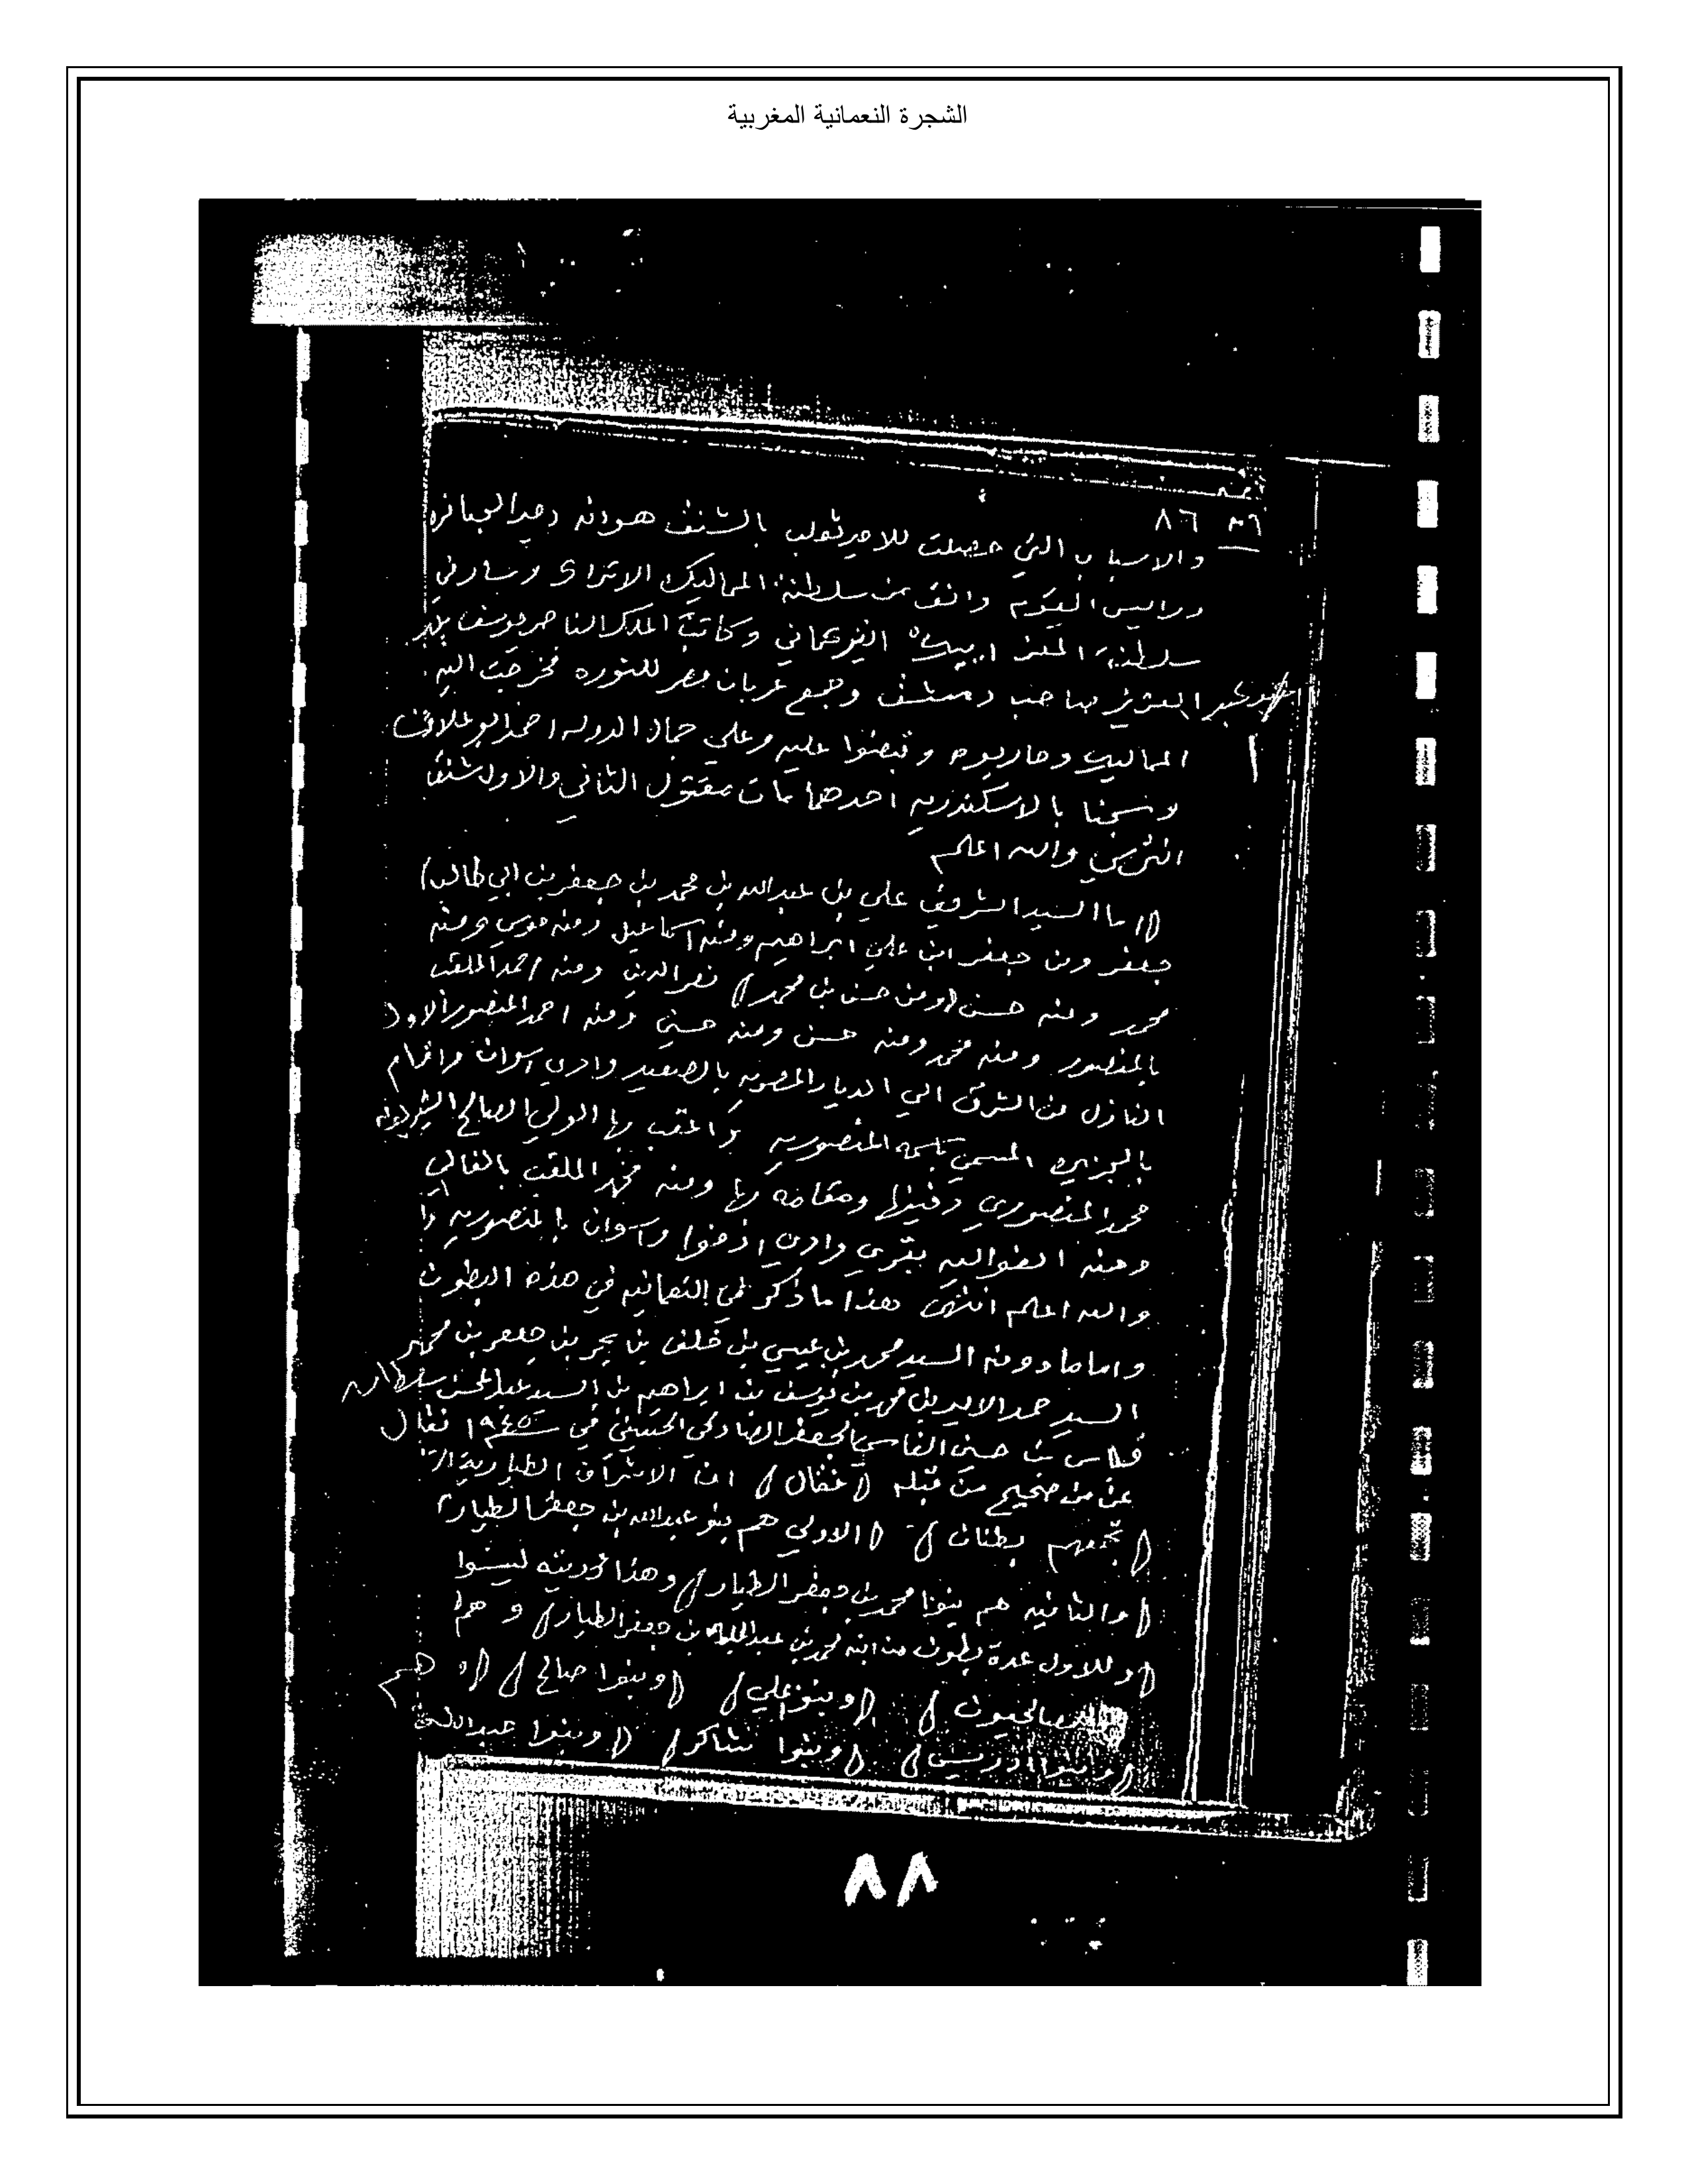 الشجرة النعمانية المغربية
٨٦
والاسباب التي حصلت للامير ثعلب بالشنق هو انه وجد الجبابره
ورايس القوم وانف من سلطنة المماليك الاتراك وسار في
سلطنة المعز ايبك التركماني وكاتب الملك الناصر يوسف
العزيز صاحب دمشق وجمع عربان مصر للثوره فخرجت اليه
المماليك وحاربوه وقبضوا عليه وعلي حماد الدوله احمد ابو علاق
وسجنا بالاسكندريه احدهما مات مقتول الثاني والاول شنق
انتهي والله اعلم
(اما السيد الشريف علي بن عبدالله بن محمد بن جعفر بن ابي طالب)
جعفر ومن جعفر ابن علي ابراهيم ومنه اسماعيل ومنه موسي ومنه
محمد ومنه حسن (ومن حسن بن محمد) نصر الدين ومنه احمد الملقب
بالمنصور ومنه محمد ومنه حسن ومنه حسني ومنه احمد المنصور الاول
النازل من الشرق الي الديار المصريه بالصعيد وادي اسوان واقام
بالجزيره المسمي باسمه المنصوريه واعقب بها الولي الصالح
محمد المنصوري دفينها ومقامه بها ومنه محمد الملقب بالغالي
ومنه الغواليه بقري وادي ادفوا واسوان بالمنصوريه
والله اعلم انتهي هذا ما ذكر في النعمانيه في هذه البطون
واما ما دونه السيد محمد بن عيسي بن خلف بن بحر بن جعفر بن محمد
السيد حمد الايد بن محمد بن يوسف بن ابراهيم بن السيد عبدالمحسن سلطان
فاس بن حسن الفاسي الجعفر الصادقي الحسيني في سنة ١٩٤٥ نقال
عن من صحيح من قبله (فقال) ان الاشراف الطياريه
(تجمعهم بطنان) (الاولي هم بنو عبدالله بن جعفر الطيار)
(والثانيه هم بنوا محمد بن جعفر الطيار) وهذا ذريته ليسوا
(وللاول عدة بطون من ابنه محمد بن عبدالله بن جعفر الطيار) وهم
الصالحيون) (وبنوا علي) (وبنوا صالح) (وهم
(وبنوا ادريس) (وبنوا شاكر) (وبنوا عبدالله
٨٨